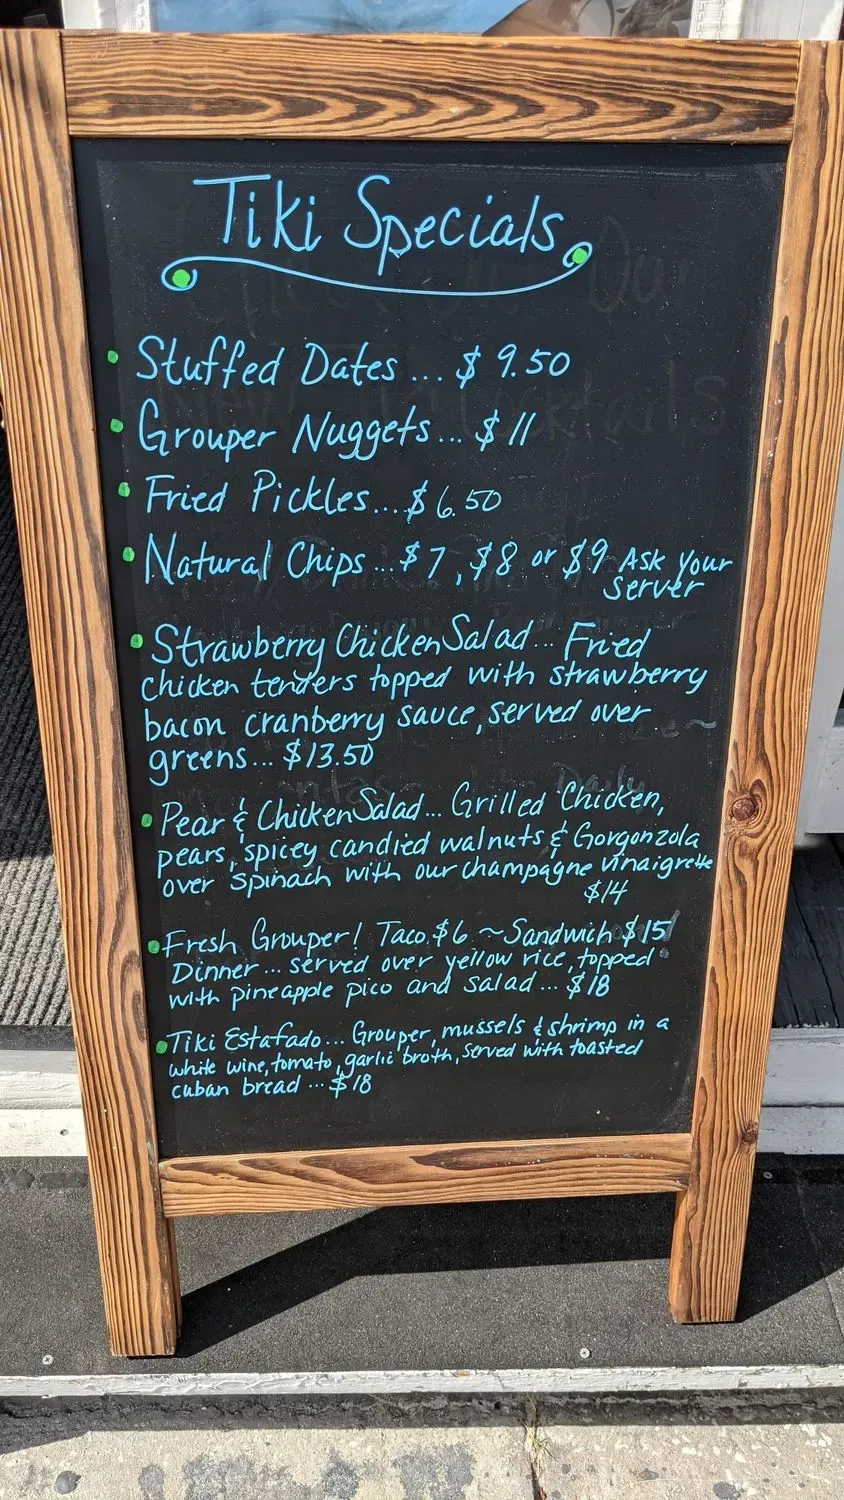 Tiki Specials
Stuffed Dates... $9.50
Grouper Nuggets... $11
Fried Pickles.... $6.50
Natural Chips... $7, $8 or $9 Ask your
server
Strawberry Chicken Salad... Fried
chicken tenders topped with strawberry
bacon cranberry sauce, served over
greens... $13.50
Pear & Chicken Salad... Grilled Chicken,
pears, spicey candied walnuts & Gorgonzola
over spinach with our champagne vinaigrette
$14
Fresh Grouper! Taco $6 ~ Sandwich $15
Dinner... served over yellow rice, topped
with pineapple pico and salad... $18
Tiki Estafado... Grouper, mussels & shrimp in a
white wine, tomato, garlic broth, served with toasted
cuban bread... $18